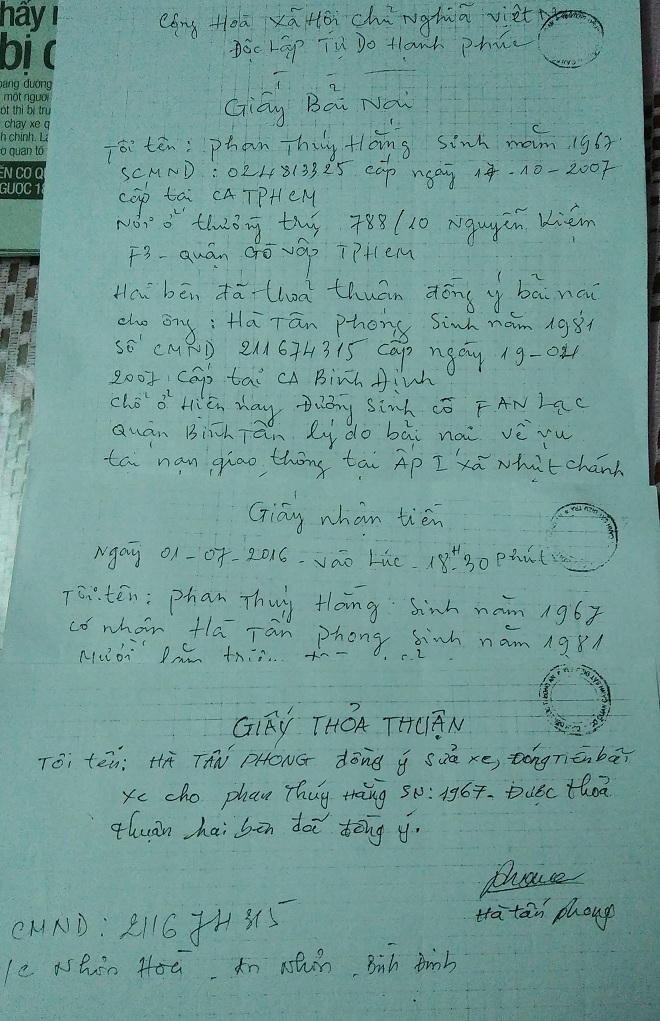 hấy
bị
bang đường
một người
chạy xe
chính. Lá
o quan tố
ÊN CƠ QU
GƯỢC 18
Cộng Hoà Xã Hội Chủ Nghĩa Việt N
Độc Lập Tự Do Hạnh Phúc
Giấy Bãi Nại
Tôi tên : Phan Thuý Hằng Sinh năm 1967
SCMND : 024813325 cấp ngày 17-10-2007
cấp tại CA TPHCM
Nơi ở thường trú 788/10 Nguyễn Kiệm
F3 - quận Gò Vấp TPHCM
Hai bên đã thoả thuận đồng ý bãi nại
cho ông : Hà Tấn Phong Sinh năm 1981
Số CMND 211674315 cấp ngày 19-04
2007 cấp tại CA Bình Định
Chỗ ở Hiện nay Đường Sinh cỏ FAN Lạc
Quận Bình Tân lý do bãi nại về vụ
tai nạn giao thông tại Ấp I xã Nhựt chánh
Giấy nhận tiền
Ngày 01-07-2016 - vào lúc - 18H-30 phút
Tôi tên : phan Thuý Hằng Sinh năm 1967
có nhận Hà Tấn phong sinh năm 1981
Mười lăm
GIẤY THỎA THUẬN
Tôi tên: HÀ TẤN PHONG đồng ý sửa xe, ĐÓNG TIỀN bãi
xe cho phan Thúy Hằng SN: 1967- Được thoả
thuận hai bên đã đồng ý.
Hà tấn phong
CMND : 211674315
Nhơn Hoà - An Nhơn - Bình Định